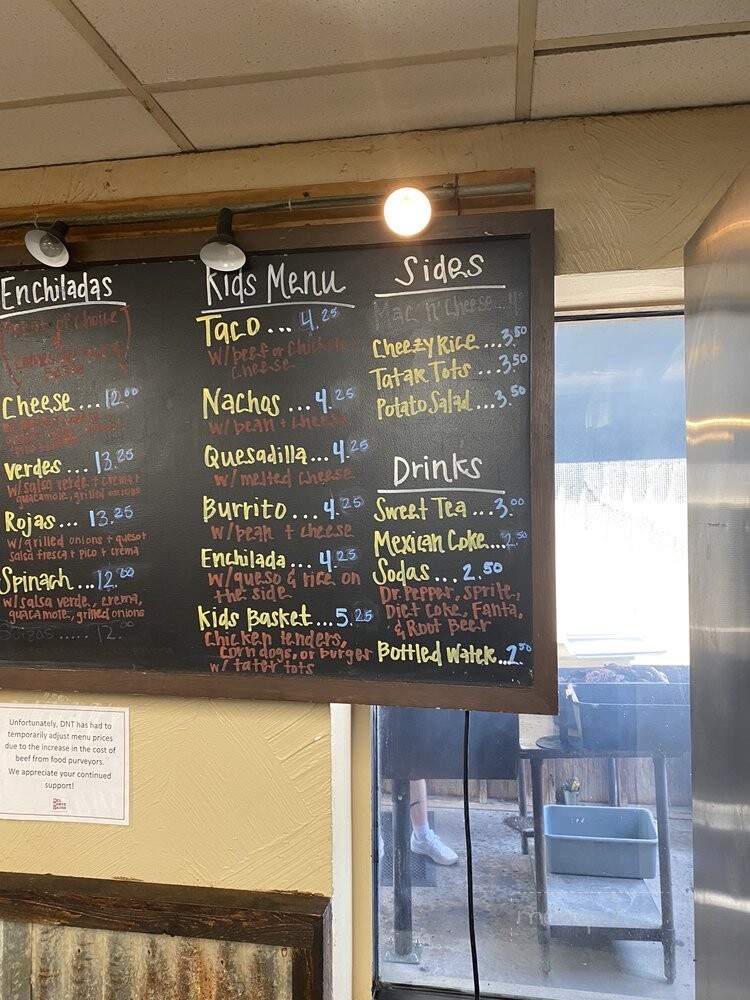 Enchiladas
Cheese... 12.00
Verdes.... 13.25
w/salsa verde + crema +
guacamole, grilled onions
Rojas... 13.25
w/grilled onions + queso +
salsa fresca + pico + crema
Spinach... 12.00
w/salsa verde, crema,
guacamole, grilled onions
Kids Menu
Taco... 4.25
w/beef or chicken
cheese
Nachos... 4.25
w/bean + cheese
Quesadilla... 4.25
w/melted cheese
Burrito... 4.25
w/bean + cheese
Enchilada... 4.25
w/queso & rice on
the side
Kids Basket... 5.25
Chicken tenders,
corn dogs, or burger
w/ tater tots
Sides
Mac n' Cheese
Cheezy Rice...3.50
Tatar Tots...3.50
Potato Salad...3.50
Drinks
Sweet Tea...3.00
Mexican Coke...2.50
Sodas... 2.50
Dr. Pepper, sprite,
Diet Coke, Fanta,
& Root Beer
Bottled Water...2.50
Unfortunately, DNT has had to
temporarily adjust menu prices
due to the increase in the cost of
beef from food purveyors.
We appreciate your continued
support!